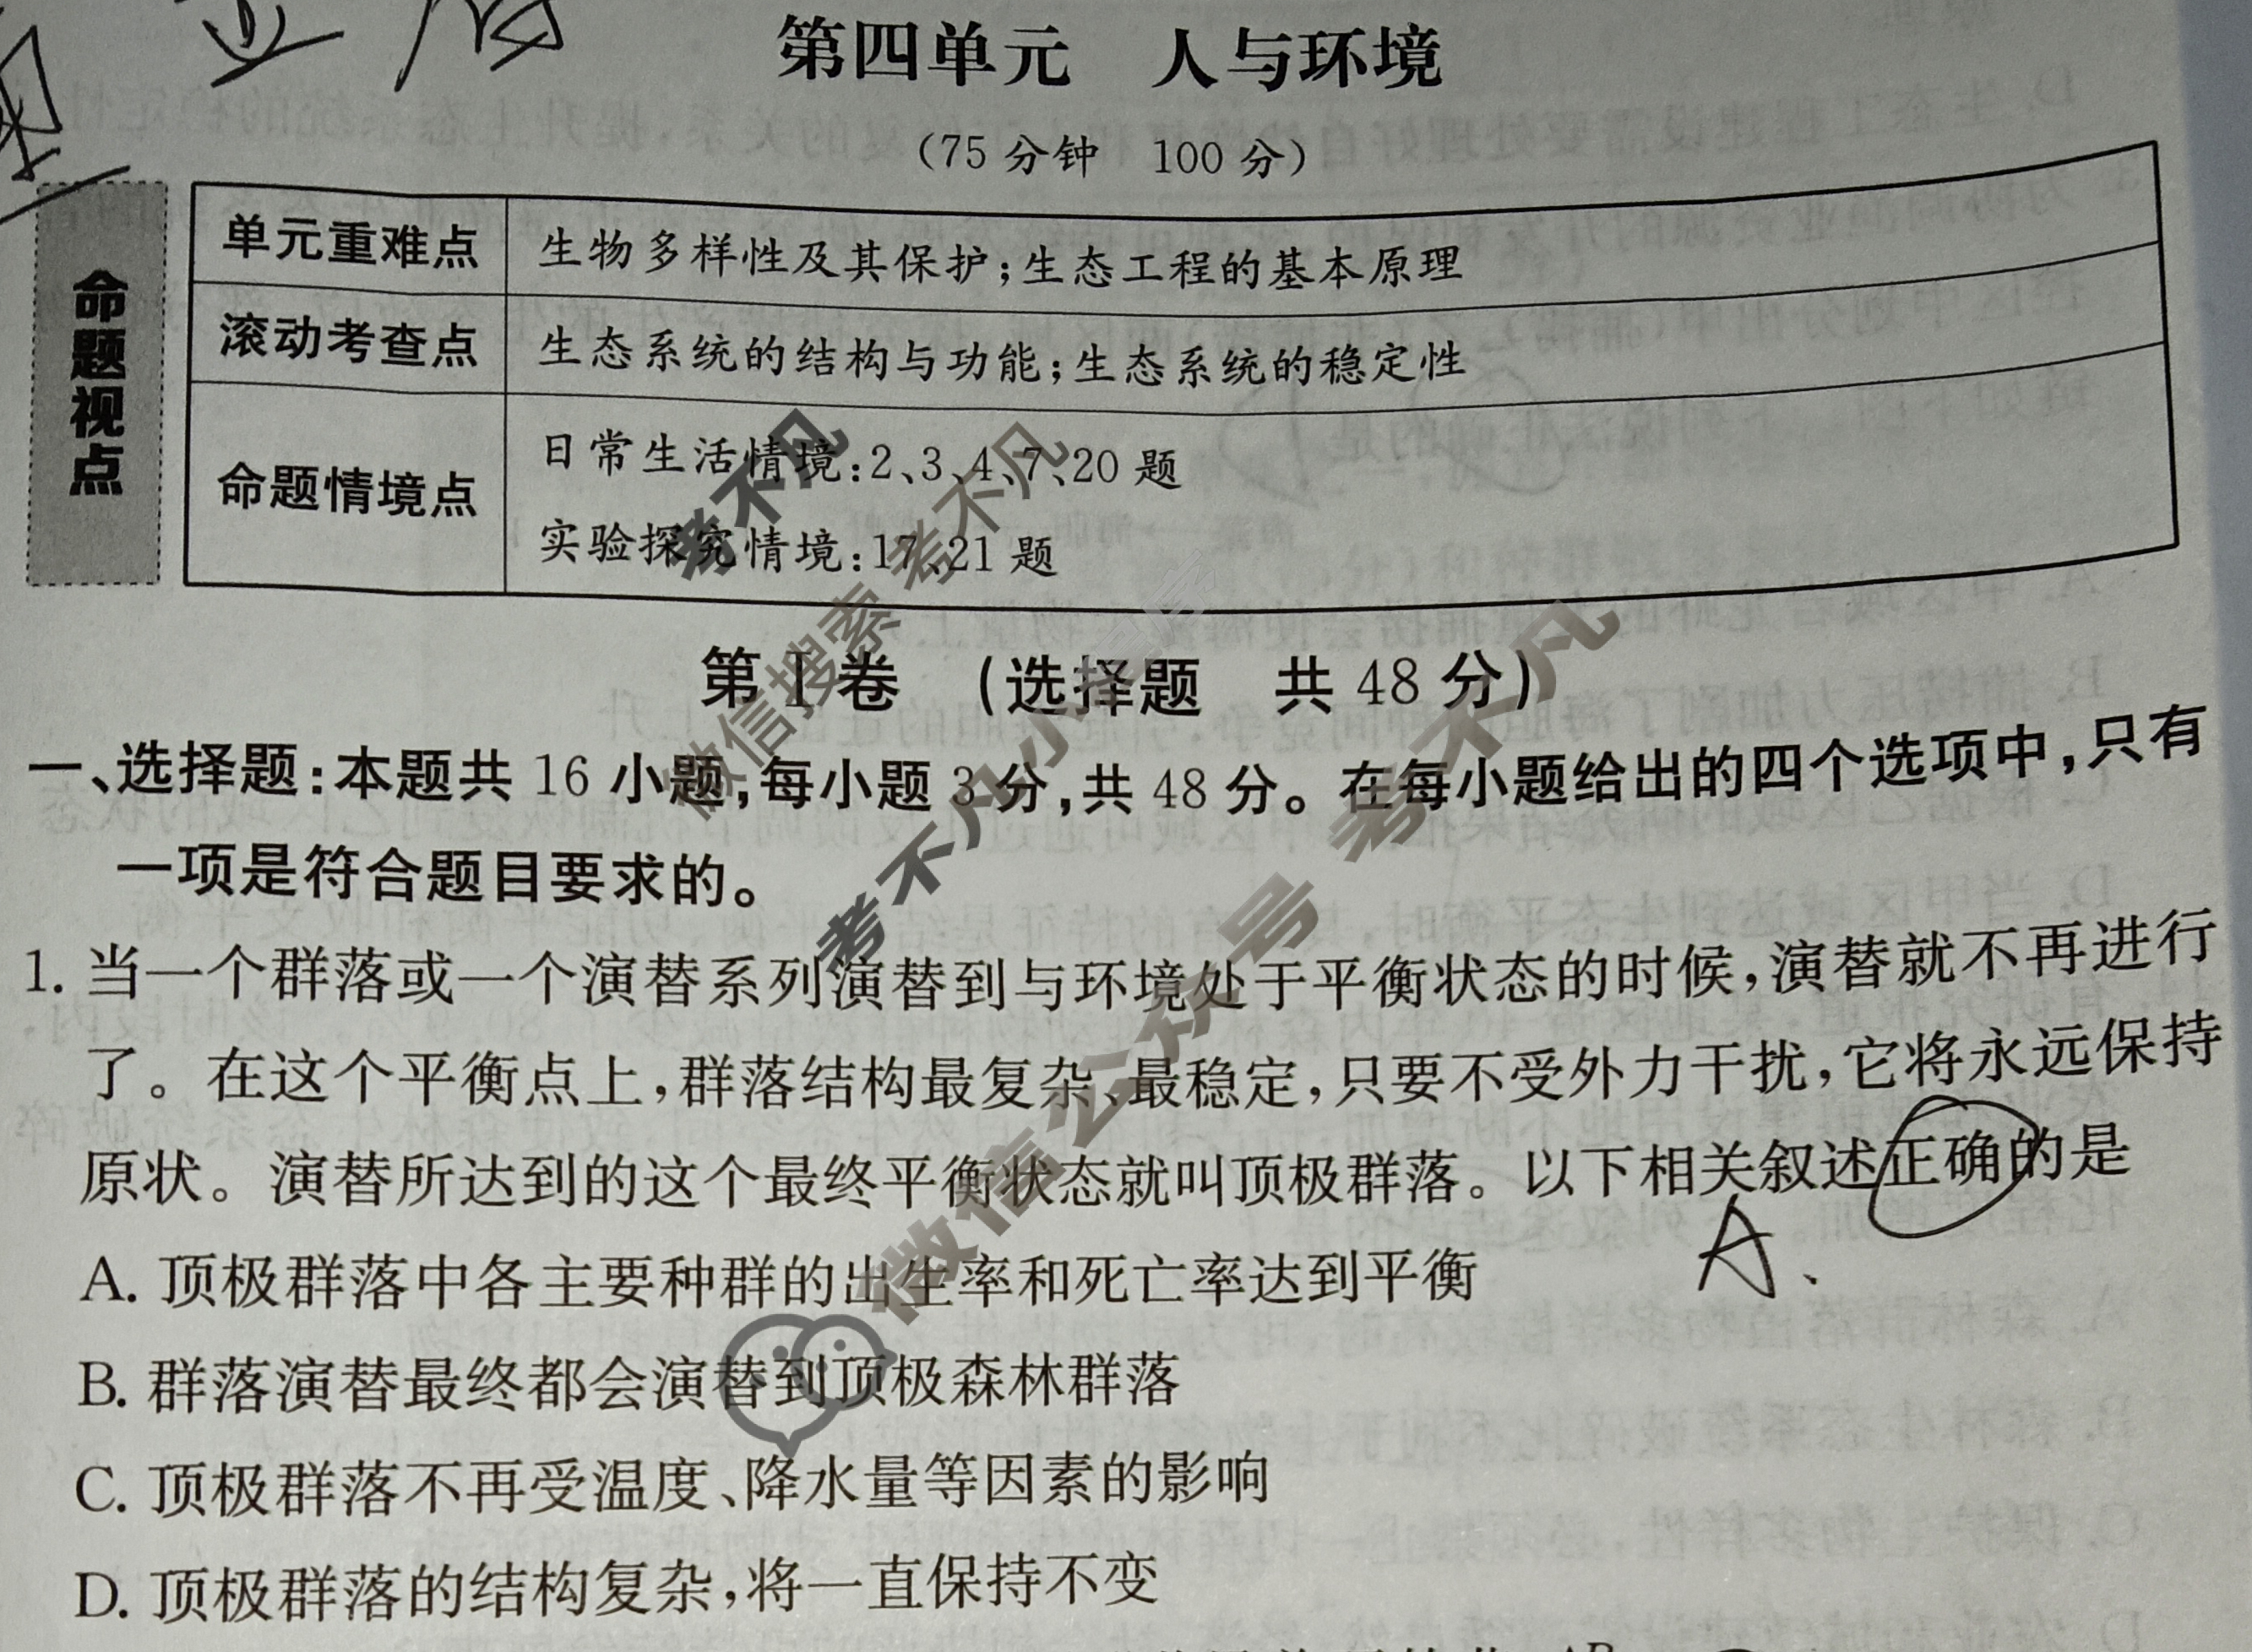 第四单元 人与环境
(75分钟 100分)
命题视点
单元重难点 生物多样性及其保护;生态工程的基本原理
滚动考查点 生态系统的结构与功能;生态系统的稳定性
命题情境点 日常生活情境:2、3、4、7、20题
实验探究情境:17、21题
第Ⅰ卷 (选择题 共48分)
一、选择题:本题共16小题,每小题3分,共48分。在每小题给出的四个选项中,只有
一项是符合题目要求的。
1. 当一个群落或一个演替系列演替到与环境处于平衡状态的时候,演替就不再进行
了。在这个平衡点上,群落结构最复杂、最稳定,只要不受外力干扰,它将永远保持
原状。演替所达到的这个最终平衡状态就叫顶极群落。以下相关叙述正确的是
A、
A. 顶极群落中各主要种群的出生率和死亡率达到平衡
B. 群落演替最终都会演替到顶极森林群落
C. 顶极群落不再受温度、降水量等因素的影响
D. 顶极群落的结构复杂,将一直保持不变
考不凡
微信搜索 考不凡
考不凡小程序
微信公众号 考不凡